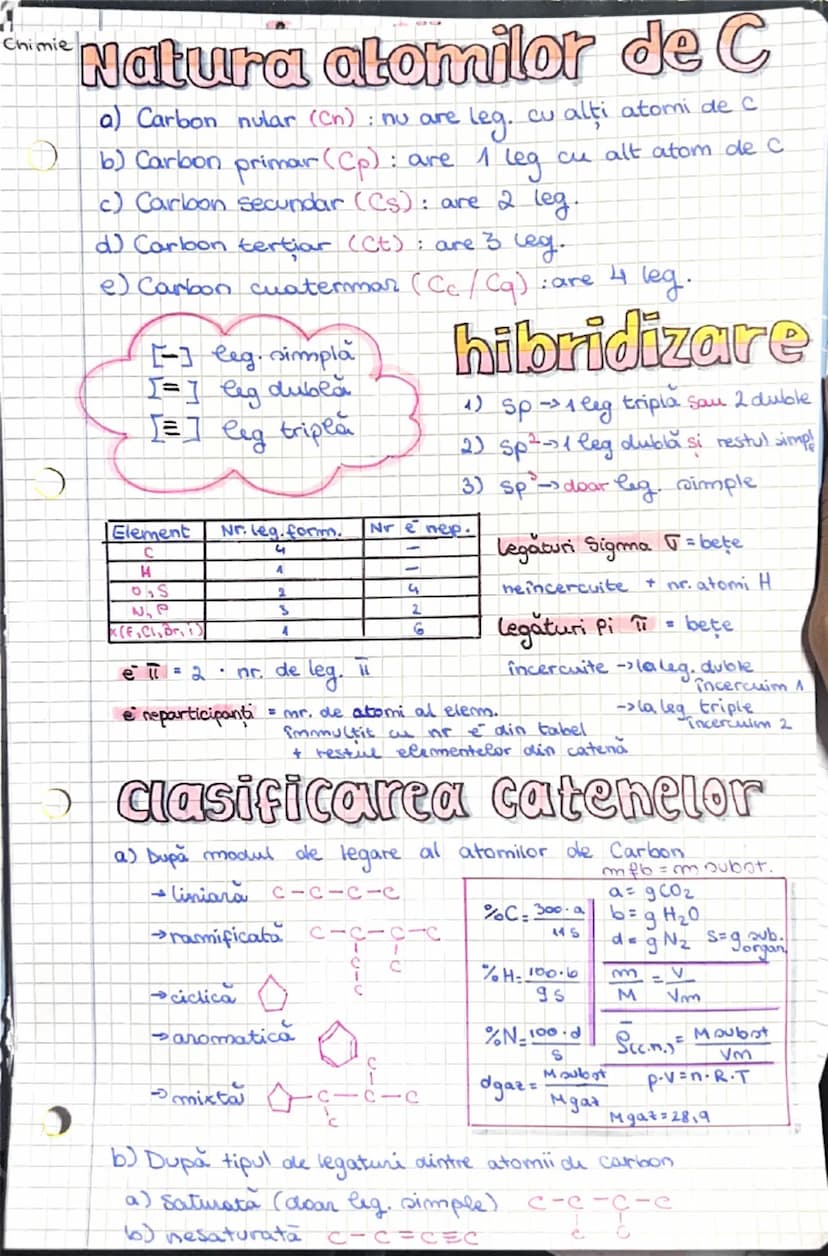 Chimie
Natura atomilor de C
a) Carbon nular (Cn) : nu are leg. cu alți atomi de C
b) Carbon primar (Cp) : are 1 leg cu alt atom de C
c) Carbon secundar (Cs) : are 2 leg.
d) Carbon terțiar (Ct) : are 3 leg.
e) Carbon cuaternar (Cc/Cq) : are 4 leg.
[-] leg. simplă
[=] leg dublă
[≡] leg triplă
hibridizare
1) sp → 1 leg triplă sau 2 duble
2) sp² → 1 leg dublă și restul simple
3) sp³ → doar leg. simple
Element Nr. leg. form. Nr e⁻ nep.
C 4 -
H 1 -
O, S 2 4
N, P 3 2
X(F, Cl, Br, I) 1 6
legături Sigma σ = bețe
neîncercuite + nr. atomi H
legături Pi π = bețe
încercuite → la leg. duble
încercuim 1
→ la leg triple
încercuim 2
e⁻ π = 2 · nr. de leg. π
e⁻ neparticipanți = nr. de atomi al elem.
înmulțit cu nr e⁻ din tabel
+ restul elementelor din catenă
Clasificarea catenelor
a) După modul de legare al atomilor de Carbon
→ liniară C-C-C-C
→ ramificată C-C-C-C
C C
C
→ ciclică
→ aromatică
→ mixtă C-C-C
C
C
m fb = m subst.
%C = 300·a / 11s
a = g CO2
b = g H2O
d = g N2 s = g sub. organ.
%H = 100·b / 9s
m/M = V/Vm
%N = 100·d / s
ρ(c.n.) = M subst / Vm
dgaz = M subst / M gaz
p·V = n·R·T
M gaz = 28,9
b) După tipul de legaturi dintre atomii de carbon
a) saturată (doar leg. simple) C-C-C-C
C C
b) nesaturată C-C=C≡C